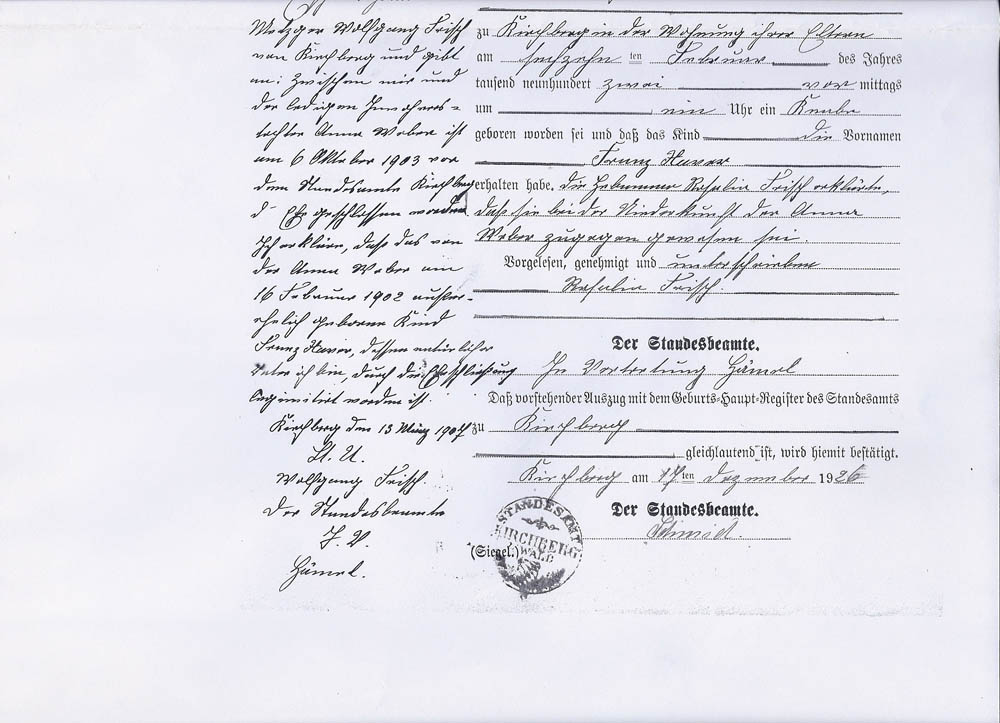 Metzger Wolfgang Frisch
von Kirchberg und gibt
an: Zwischen mir und
der ledigen
tochter Anna Weber ist
am 6 Oktober 1903 vor
dem Standesamte Kirchberg
d' Ehe geschlossen worden
Ich erkläre, daß das von
der Anna Weber am
16 Februar 1902 außer-
ehelich geborene Kind
Franz Xaver, dessen natürlicher
Vater ich bin, durch die Eheschließung
legimitirt worden ist.
Kirchberg den 13 März 1907
St. U.
Wolfgang Frisch
Der Standesbeamte
J. V.
Hämel.
zu Kirchberg in der Wohnung ihrer Eltern
am sechzehn ten Februar des Jahres
tausend neunhundert zwei vor mittags
um ein Uhr ein Knabe
geboren worden sei und daß das Kind die Vornamen
Franz Xaver
erhalten habe. Die Hebamme Rosalia Frisch erklärte,
daß sie bei der Niederkunft der Anna
Weber zugegen gewesen sei.
Vorgelesen, genehmigt und unterschrieben
Rosalia Frisch.
Der Standesbeamte.
In Vertretung Hämel
Daß vorstehender Auszug mit dem Geburts-Haupt-Register des Standesamts
zu Kirchberg
gleichlautend ist, wird hiemit bestätigt.
Kirchberg am 17 ten Dezember 1926
Der Standesbeamte.
Schmid.
(Siegel.)
STANDESAMT
KIRCHBERG
WALD